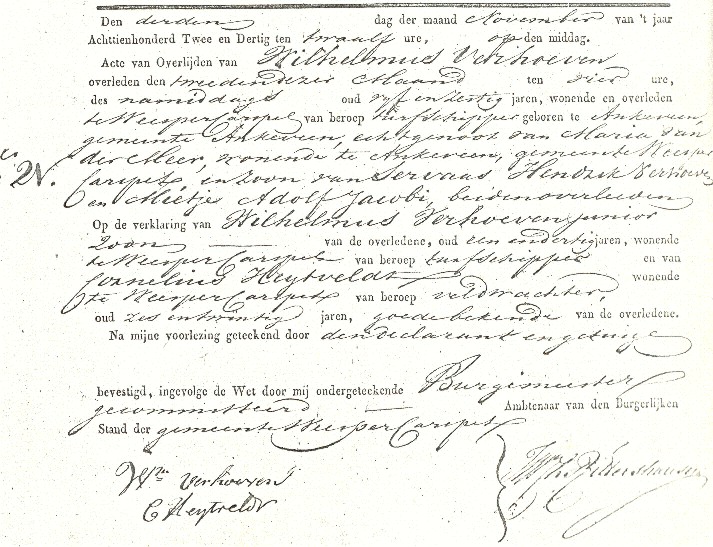 Den derden dag der maand November van 't jaar
Achttienhonderd Twee en Dertig ten twaalf ure, op den middag.
Acte van Overlijden van Wilhelmus Verhoeven
overleden den tweeden dezer Maand ten vier ure,
des namiddags oud vyf en zestig jaren, wonende en overleden
te Weesper Carspel van beroep turfschipper geboren te Ankeveen,
gemeente Ankeveen, echtgenoot van Maria van
der Meer, wonende te Ankeveen, gemeente Weesper
Carspel, en zoon van Servaas Hendrik Verhoeven
en Mietje Adolf Jacobi, beiden overleden
Op de verklaring van Wilhelmus Verhoeven junior
Zoon van de overledene, oud een en dertig jaren, wonende
te Weesper Carspel van beroep turfschipper en van
Cornelius Heytveldt wonende
te Weesper Carspel van beroep veldwachter,
oud zes en twintig jaren, goede bekende van de overledene.
Na mijne voorlezing geteekend door den declarant en getuige
bevestigd, ingevolge de Wet door mij ondergeteekende Burgemeester
gecommitteerd Ambtenaar van den Burgerlijken
Stand der gemeente Weesper Carspel
Wm Verhoeven J
C Heytveldt